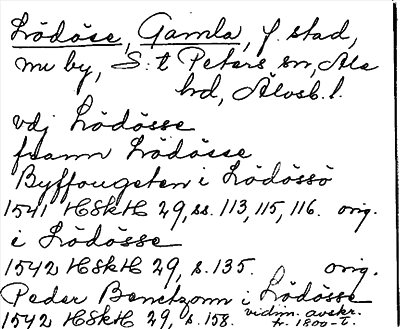 Lödöse, Gamla, f. stad,
nu by, S:t Peters sn, Ale
hd, Älvsb. l.
vdj Lödösse
framn Lödösse
Byffougeten i Lödössö
1541 HSkH 29, ss. 113, 115, 116. orig.
i Lödösse
1542 HSkH 29, s. 135. orig.
Peder Benctzonn i Lödösse
1542 HSkH 29, s. 158. vidim. avskr.
fr. 1800-t.